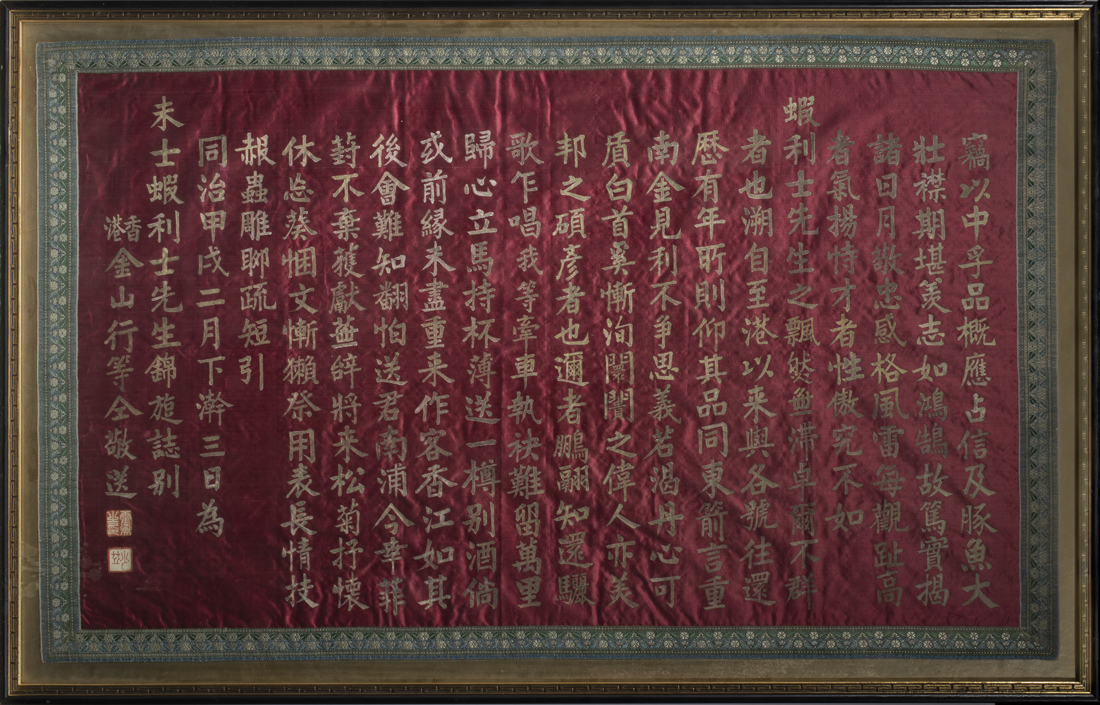 竊以中孚品概應占信及豚魚大
壯襟期堪羨志如鴻鵠故篤實揭
諸日月敬忠感格風雷每觀趾高
者氣揚恃才者性傲究不如
蝦利士先生之飄然無滯卓爾不群
者也溯自至港以来與各號往還
歷有年所則仰其品同東箭言重
南金見利不争思義若渴丹心可
質白首奚慚洵闤闠之偉人亦美
邦之碩彦者也邇者鵬翮知還驪
歌乍唱我等牽車執袂難留萬里
歸心立馬持杯薄送一樽别酒倘
或前緣未盡重来作客香江如其
後會難知翻怕送君南浦今幸葑
菲不棄獲獻無辭将来松菊抒懷
休忘葵悃文慚獺祭用表長情技
赧蟲雕聊疏短引
同治甲戌二月下澣三日為
末士蝦利士先生錦旋誌别
香港金山行等仝敬送